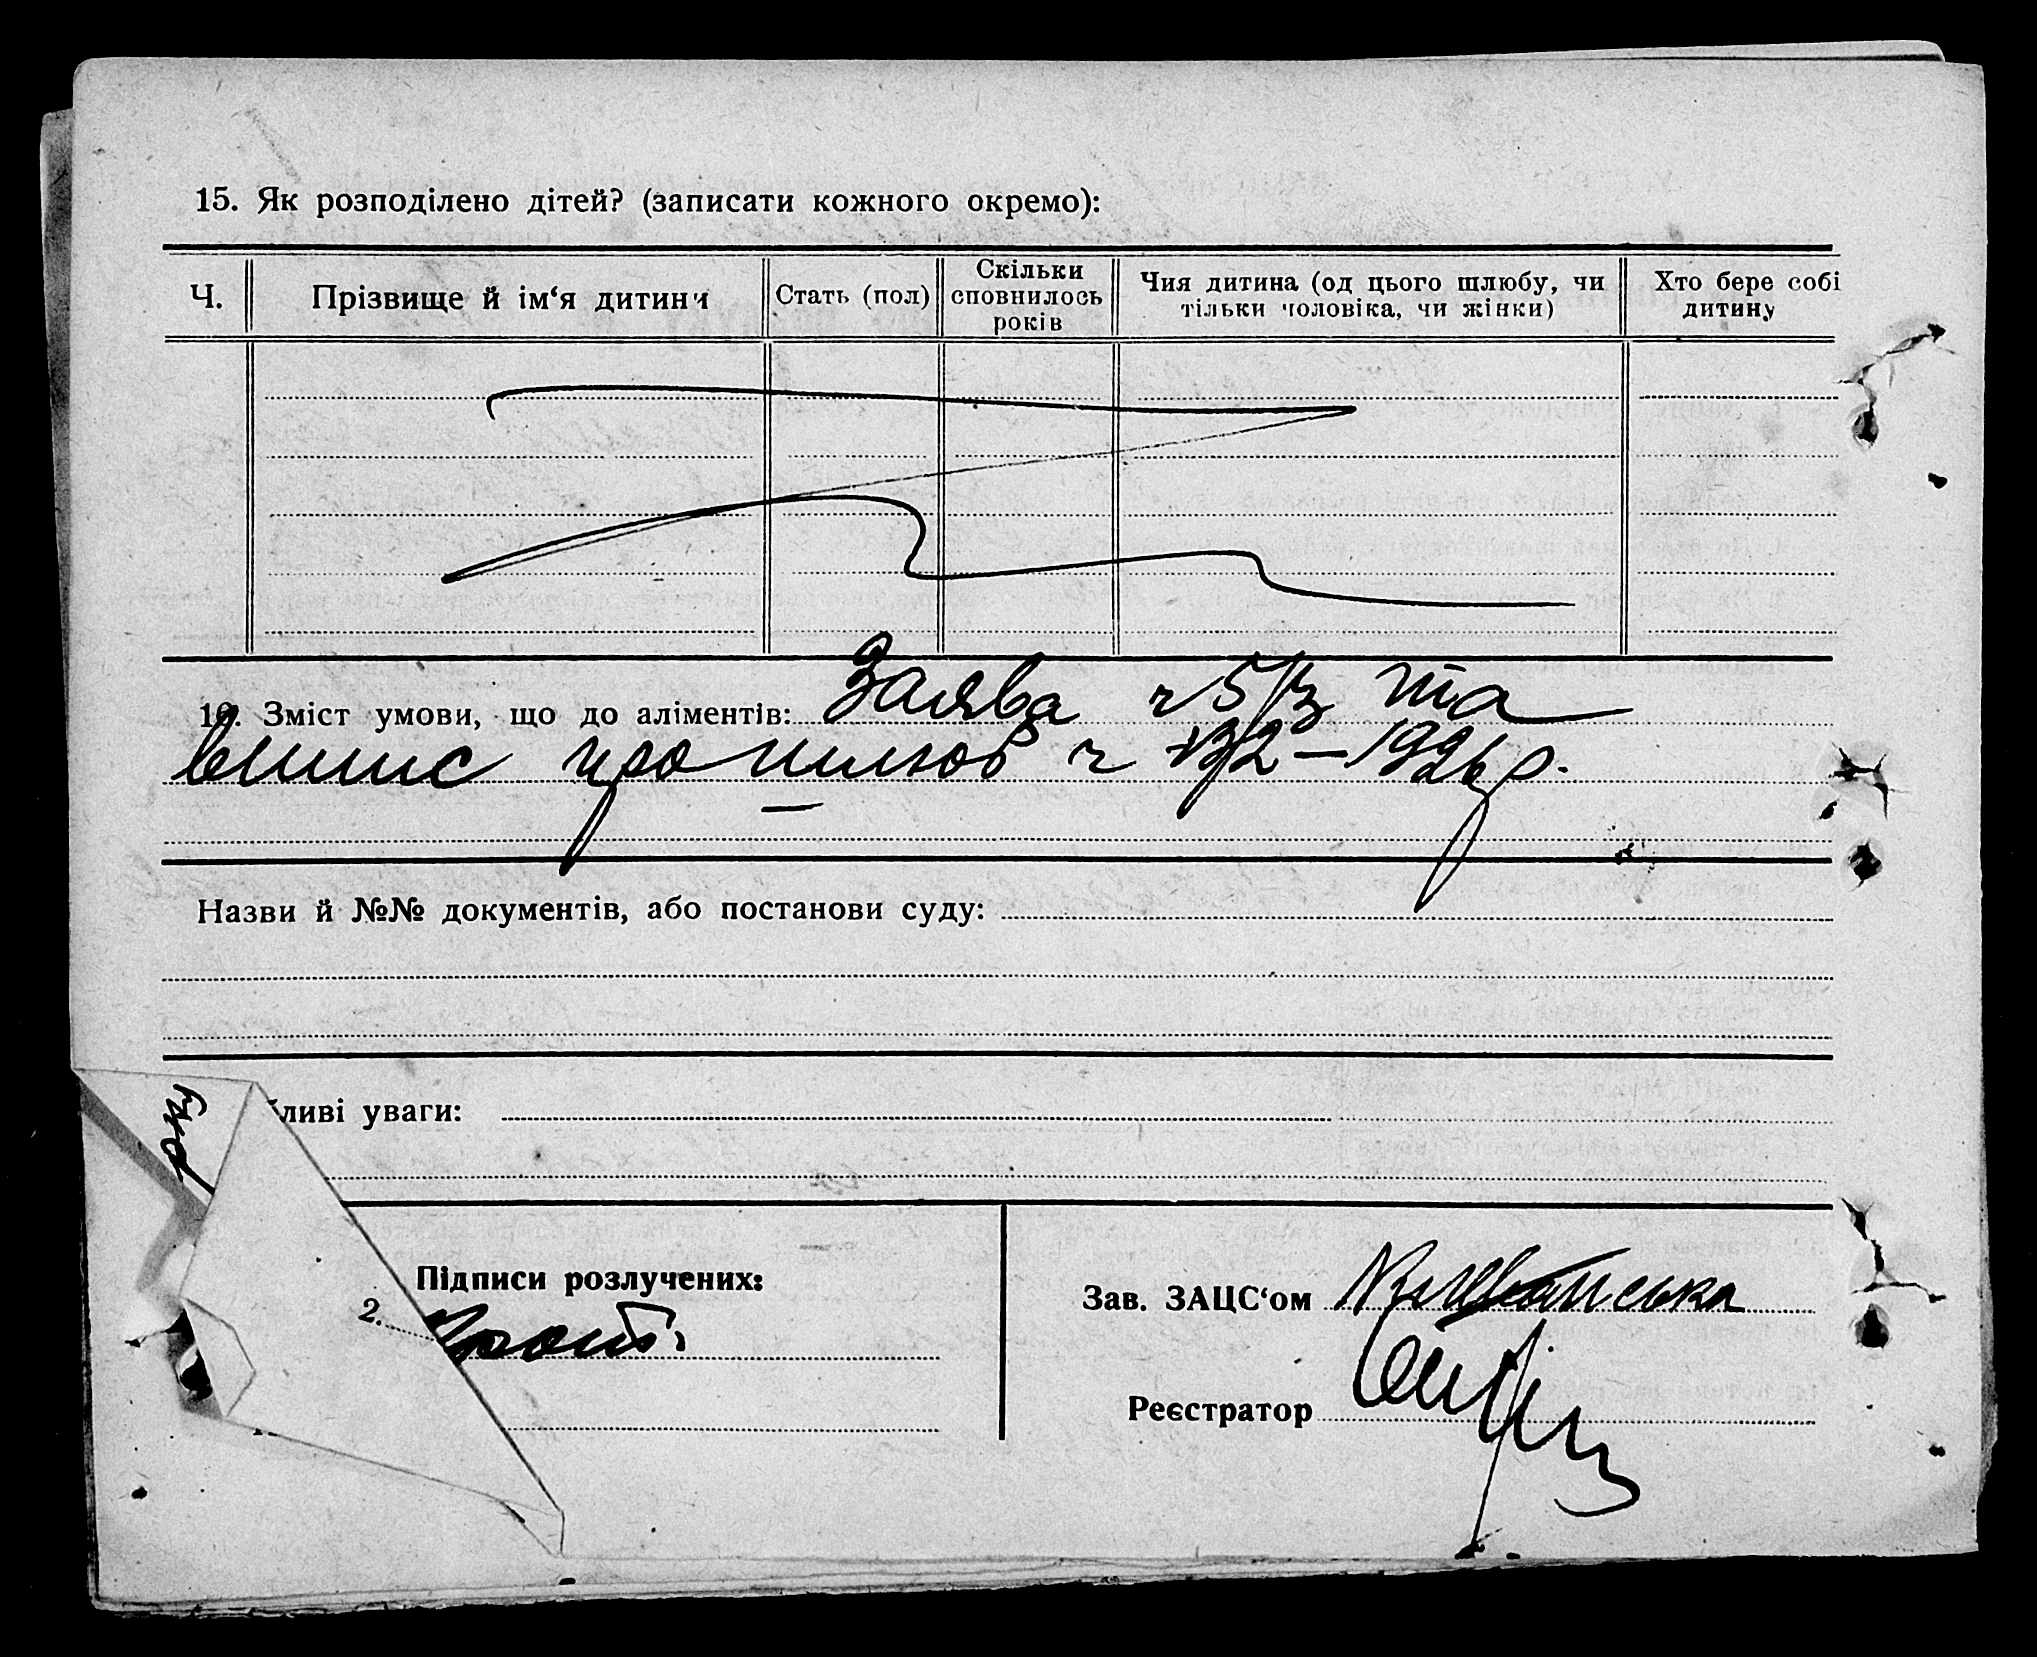 15. Як розподілено дітей? (записати кожного окремо):
Ч. Прізвище й ім‘я дитини Стать (пол) Скільки сповнилось років Чия дитина (од цього шлюбу, чи тільки чоловіка, чи жінки) Хто бере собі дитину
16. Зміст умови, що до аліментів: Заява ч 5/3 та
випис про шлюб ч 13/2 – 1926 р.
Назви й №№ документів, або постанови суду:
ливі уваги:
Підписи розлучених:
2.
Зав. ЗАЦС‘ом
Реєстратор